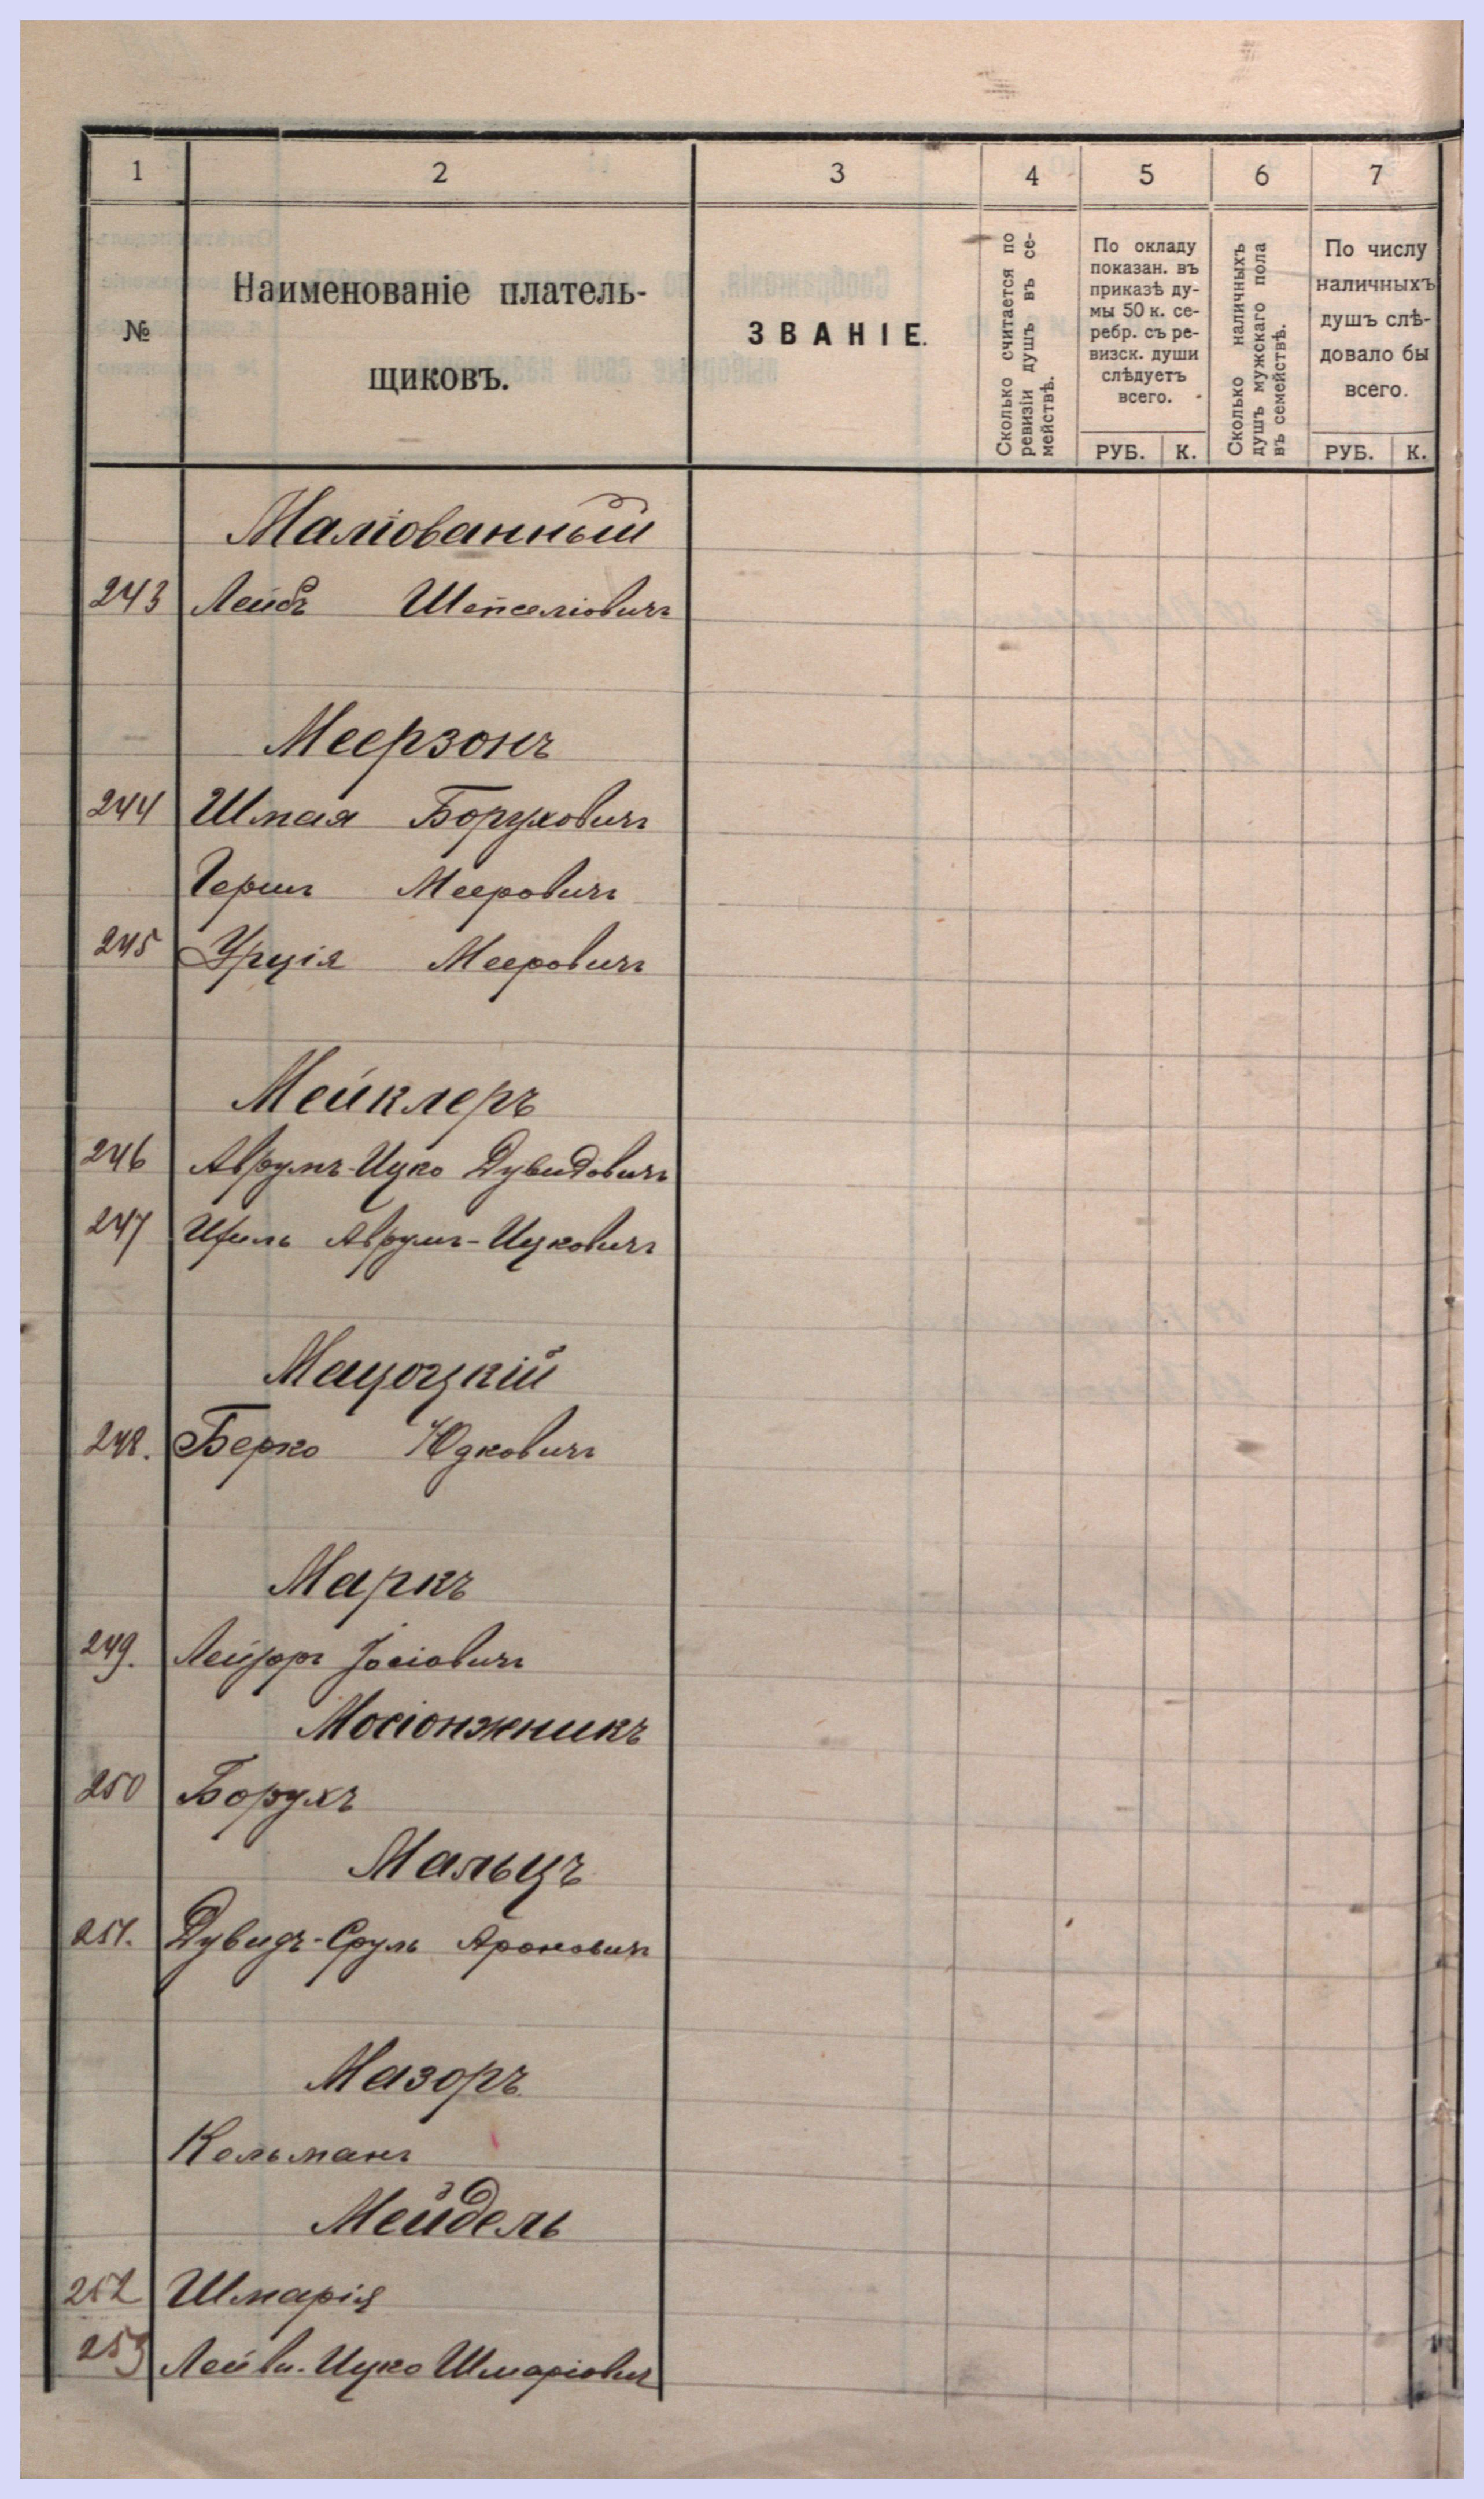 1 2 3 4 5 6 7
№
Наименованіе платель-
щиковъ.
ЗВАНІЕ.
Сколько считается по
ревизіи душъ въ се-
мействѣ.
По окладу
показан. въ
приказѣ ду-
мы 50 к. се-
ребр. съ ре-
визск. души
слѣдуетъ
всего.
РУБ. К.
Сколько наличныхъ
душъ мужскаго пола
въ семействѣ.
По числу
наличныхъ
душъ слѣ-
довало бы
всего.
РУБ. К.
Маліованный
243 Лейбъ Шепселіовичъ
Меерзонъ
244 Шмая Боруховичъ
Герш Мееровичъ
245 Меерович
Мейклеръ
246 Аврумъ-Ицко Дувидовичъ
247 Аврумъ-Ицковичъ
Мацоцкій
248. Берко Юдковичъ
Маркъ
249. Лейзоръ Іосіовичъ
Мосіонжникъ
250 Борухъ
Мальцъ
251. Дувидъ-Сруль Ароновичъ
Мазоръ
Кельманъ
Мейдель
252 Шмарія
253 Ицко Шмаріовичъ